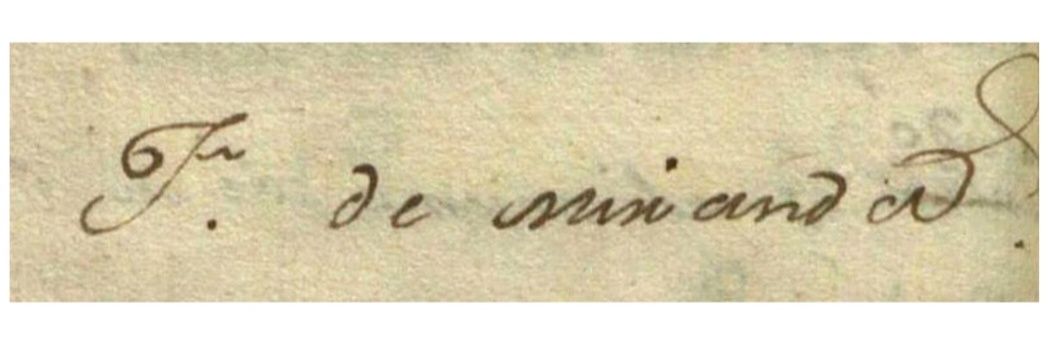 Fr. de miranda.